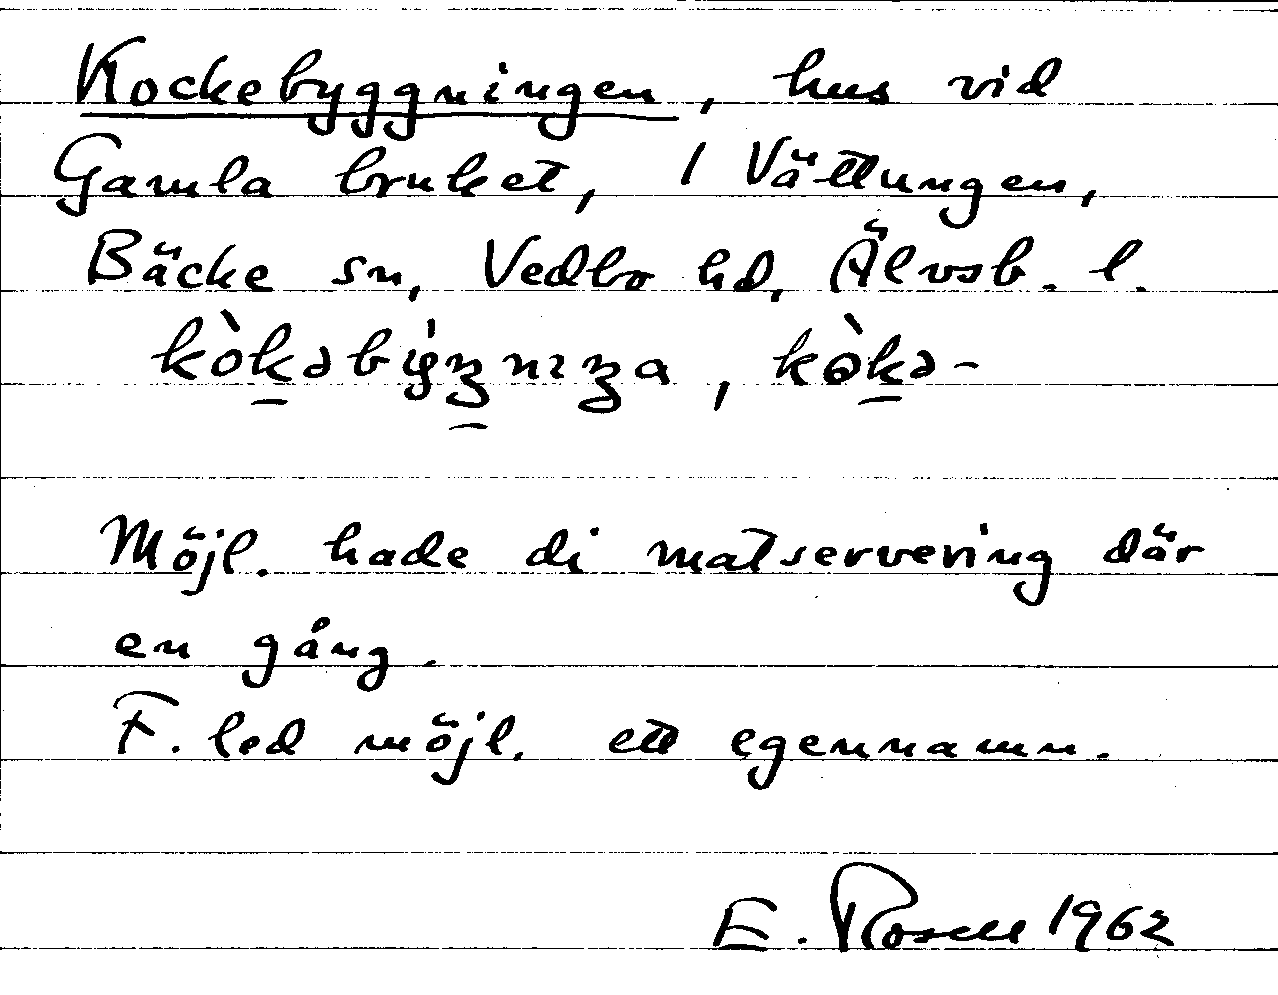 Kockebyggningen, hus vid
Gamla bruket, 1 Vättungen,
Bäcke sn, Vedbo hd, Älvsb. l.
kòkəbygnıŋa, kòkə-
Möjl. hade di matservering där
en gång.
F. led möjl. ett egennamn.
E. Rosell 1962